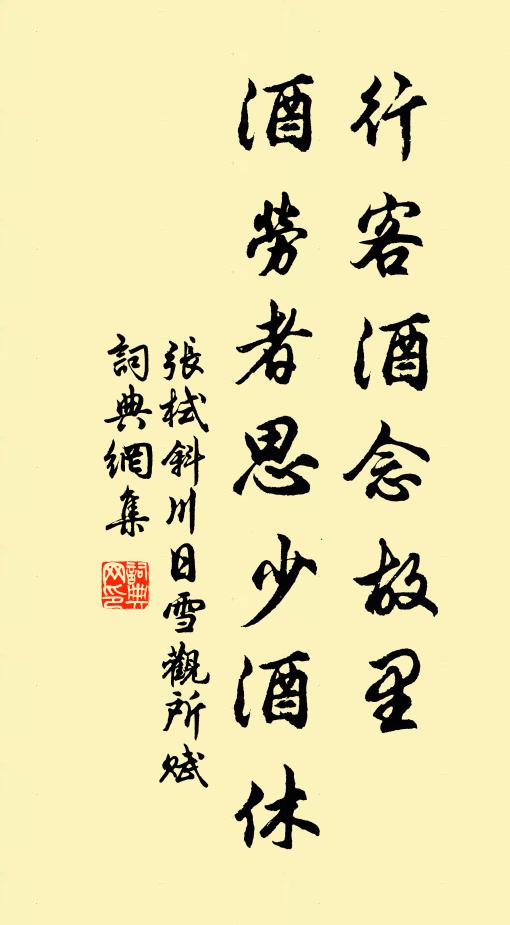 行客酒念故里
酒勞者思少酒休
張栻斜川日雪觀所賦
詞典網集
詞典網印